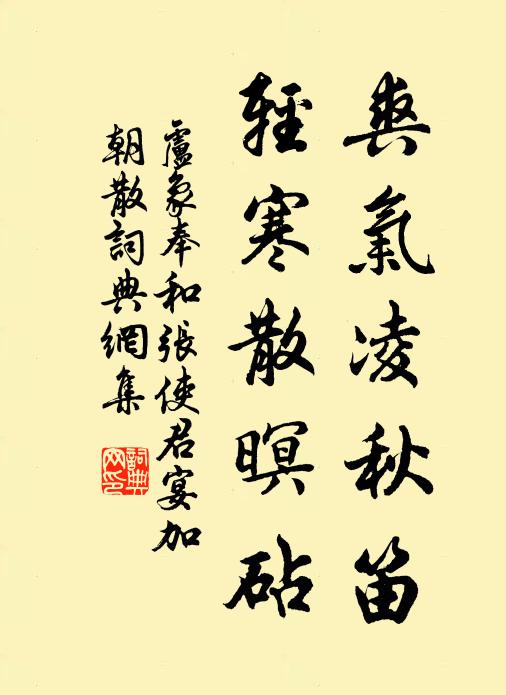 爽氣凌秋笛
輕寒散暝砧
盧象奉和張使君宴加
朝散詞典網集
詞典網印